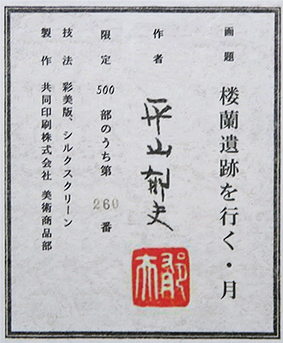 画題 楼蘭遺跡を行く・月
作者 平山郁夫
郁夫
限定 500 部のうち第 260 番
技法 彩美版、シルクスクリーン
製作 共同印刷株式会社 美術商品部